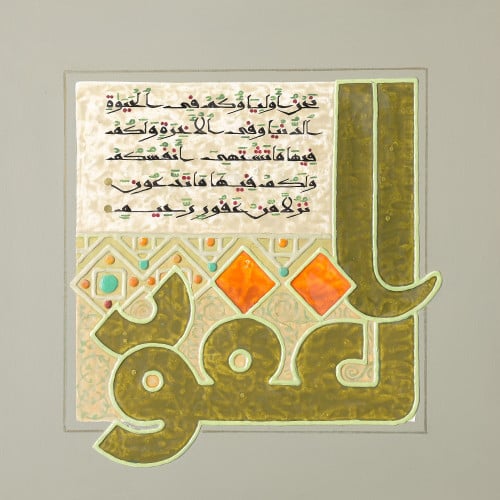 نَحْنُ أَوْلِيَاؤُكُمْ فِي الْحَيَوٰةِ
الدُّنْيَا وَفِي الْأَخِرَةِ وَلَكُمْ
فِيهَا مَا تَشْتَهِي أَنْفُسُكُمْ
وَلَكُمْ فِيهَا مَا تَدَّعُونَ
نُزُلًا مِّنْ غَفُورٍ رَّحِيمٍ